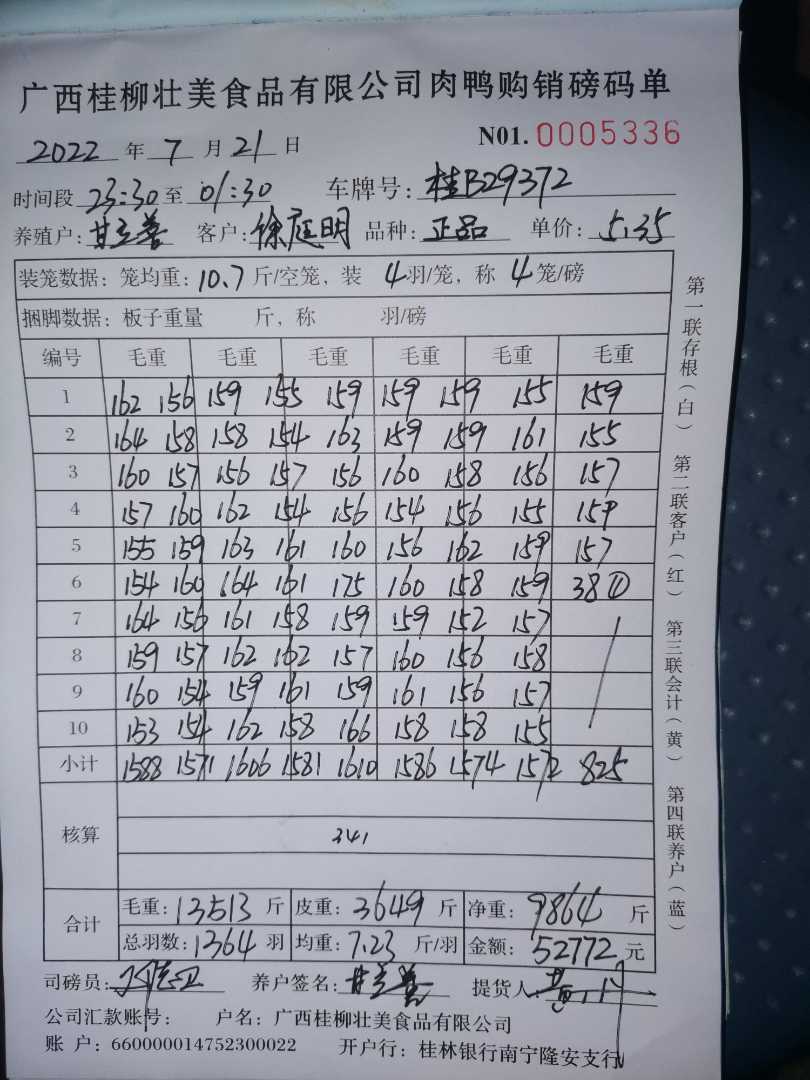 广西桂柳壮美食品有限公司肉鸭购销磅码单
2022 年 7 月 21 日 N01. 0005336
时间段 23:30 至 01:30 车牌号: 桂B29372
养殖户: 甘立善 客户: 徐庭明 品种: 正品 单价: 5.35
装笼数据: 笼均重: 10.7 斤/空笼, 装 4 羽/笼, 称 4 笼/磅
捆脚数据: 板子重量 斤, 称 羽/磅
编号 毛重 毛重 毛重 毛重 毛重 毛重
1 162 156 159 155 159 159 159 155 159
2 164 158 158 154 163 159 159 161 155
3 160 157 156 157 156 160 158 156 157
4 157 160 162 154 156 154 156 155 159
5 155 159 163 161 160 156 162 159 157
6 154 160 164 161 175 160 158 159 38①
7 164 156 161 158 159 159 152 157
8 159 157 162 162 157 160 156 158
9 160 154 159 161 159 161 156 157
10 153 154 162 158 166 158 158 155
小计 1588 1571 1606 1581 1610 1586 1574 1572 825
核算 341
合计 毛重: 13513 斤 皮重: 3649 斤 净重: 9864 斤
总羽数: 1364 羽 均重: 7.23 斤/羽 金额: 52772 元
司磅员: 养户签名: 甘立善 提货人: 黄
公司汇款账号: 户名: 广西桂柳壮美食品有限公司
账 户: 660000014752300022 开户行: 桂林银行南宁隆安支行
第一联存根(白) 第二联客户(红) 第三联会计(黄) 第四联养户(蓝)